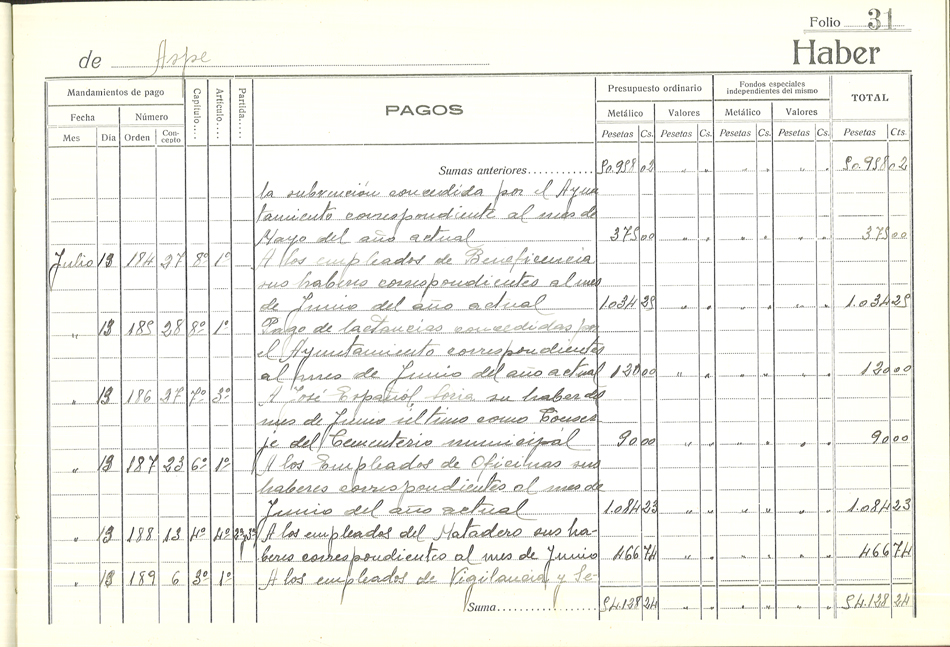 Folio 31
de Aspe
Haber
Mandamientos de pago Capítulo.... Artículo.... Partida.... PAGOS Presupuesto ordinario Fondos especiales independientes del mismo TOTAL
Fecha Número Metálico Valores Metálico Valores
Mes Día Orden Concepto Pesetas Cs. Pesetas Cs. Pesetas Cs. Pesetas Cs. Pesetas Cts.
Sumas anteriores............ 50.958 02 " " " " " " 50.958 02
la subvención concedida por el Ayun
tamiento correspondiente al mes de
Mayo del año actual 375 00 " " " " " " 375 00
Julio 13 184 27 8º 1º A los empleados de Beneficencia
sus haberes correspondientes al mes
de Junio del año actual 1.034 25 " " " " " " 1.034 25
" 13 185 28 8º 1º Pago de lactancias concedidas por
el Ayuntamiento correspondientes
al mes de Junio del año actual 120 00 " " " " " " 120 00
" 13 186 27 7º 3º A José Español Soria su haber del
mes de Junio último como Conser-
je del Cementerio municipal 90 00 " " " " " " 90 00
" 13 187 23 6º 1º A los Empleados de Oficinas sus
haberes correspondientes al mes de
Junio del año actual 1.084 23 " " " " " " 1.084 23
" 13 188 13 4º 4º A los empleados del Matadero sus ha-
beres correspondientes al mes de Junio 466 74 " " " " " " 466 74
" 13 189 6 3º 1º A los empleados de Vigilancia y Se-
Suma.................. 54.128 24 " " " " " " 54.128 24